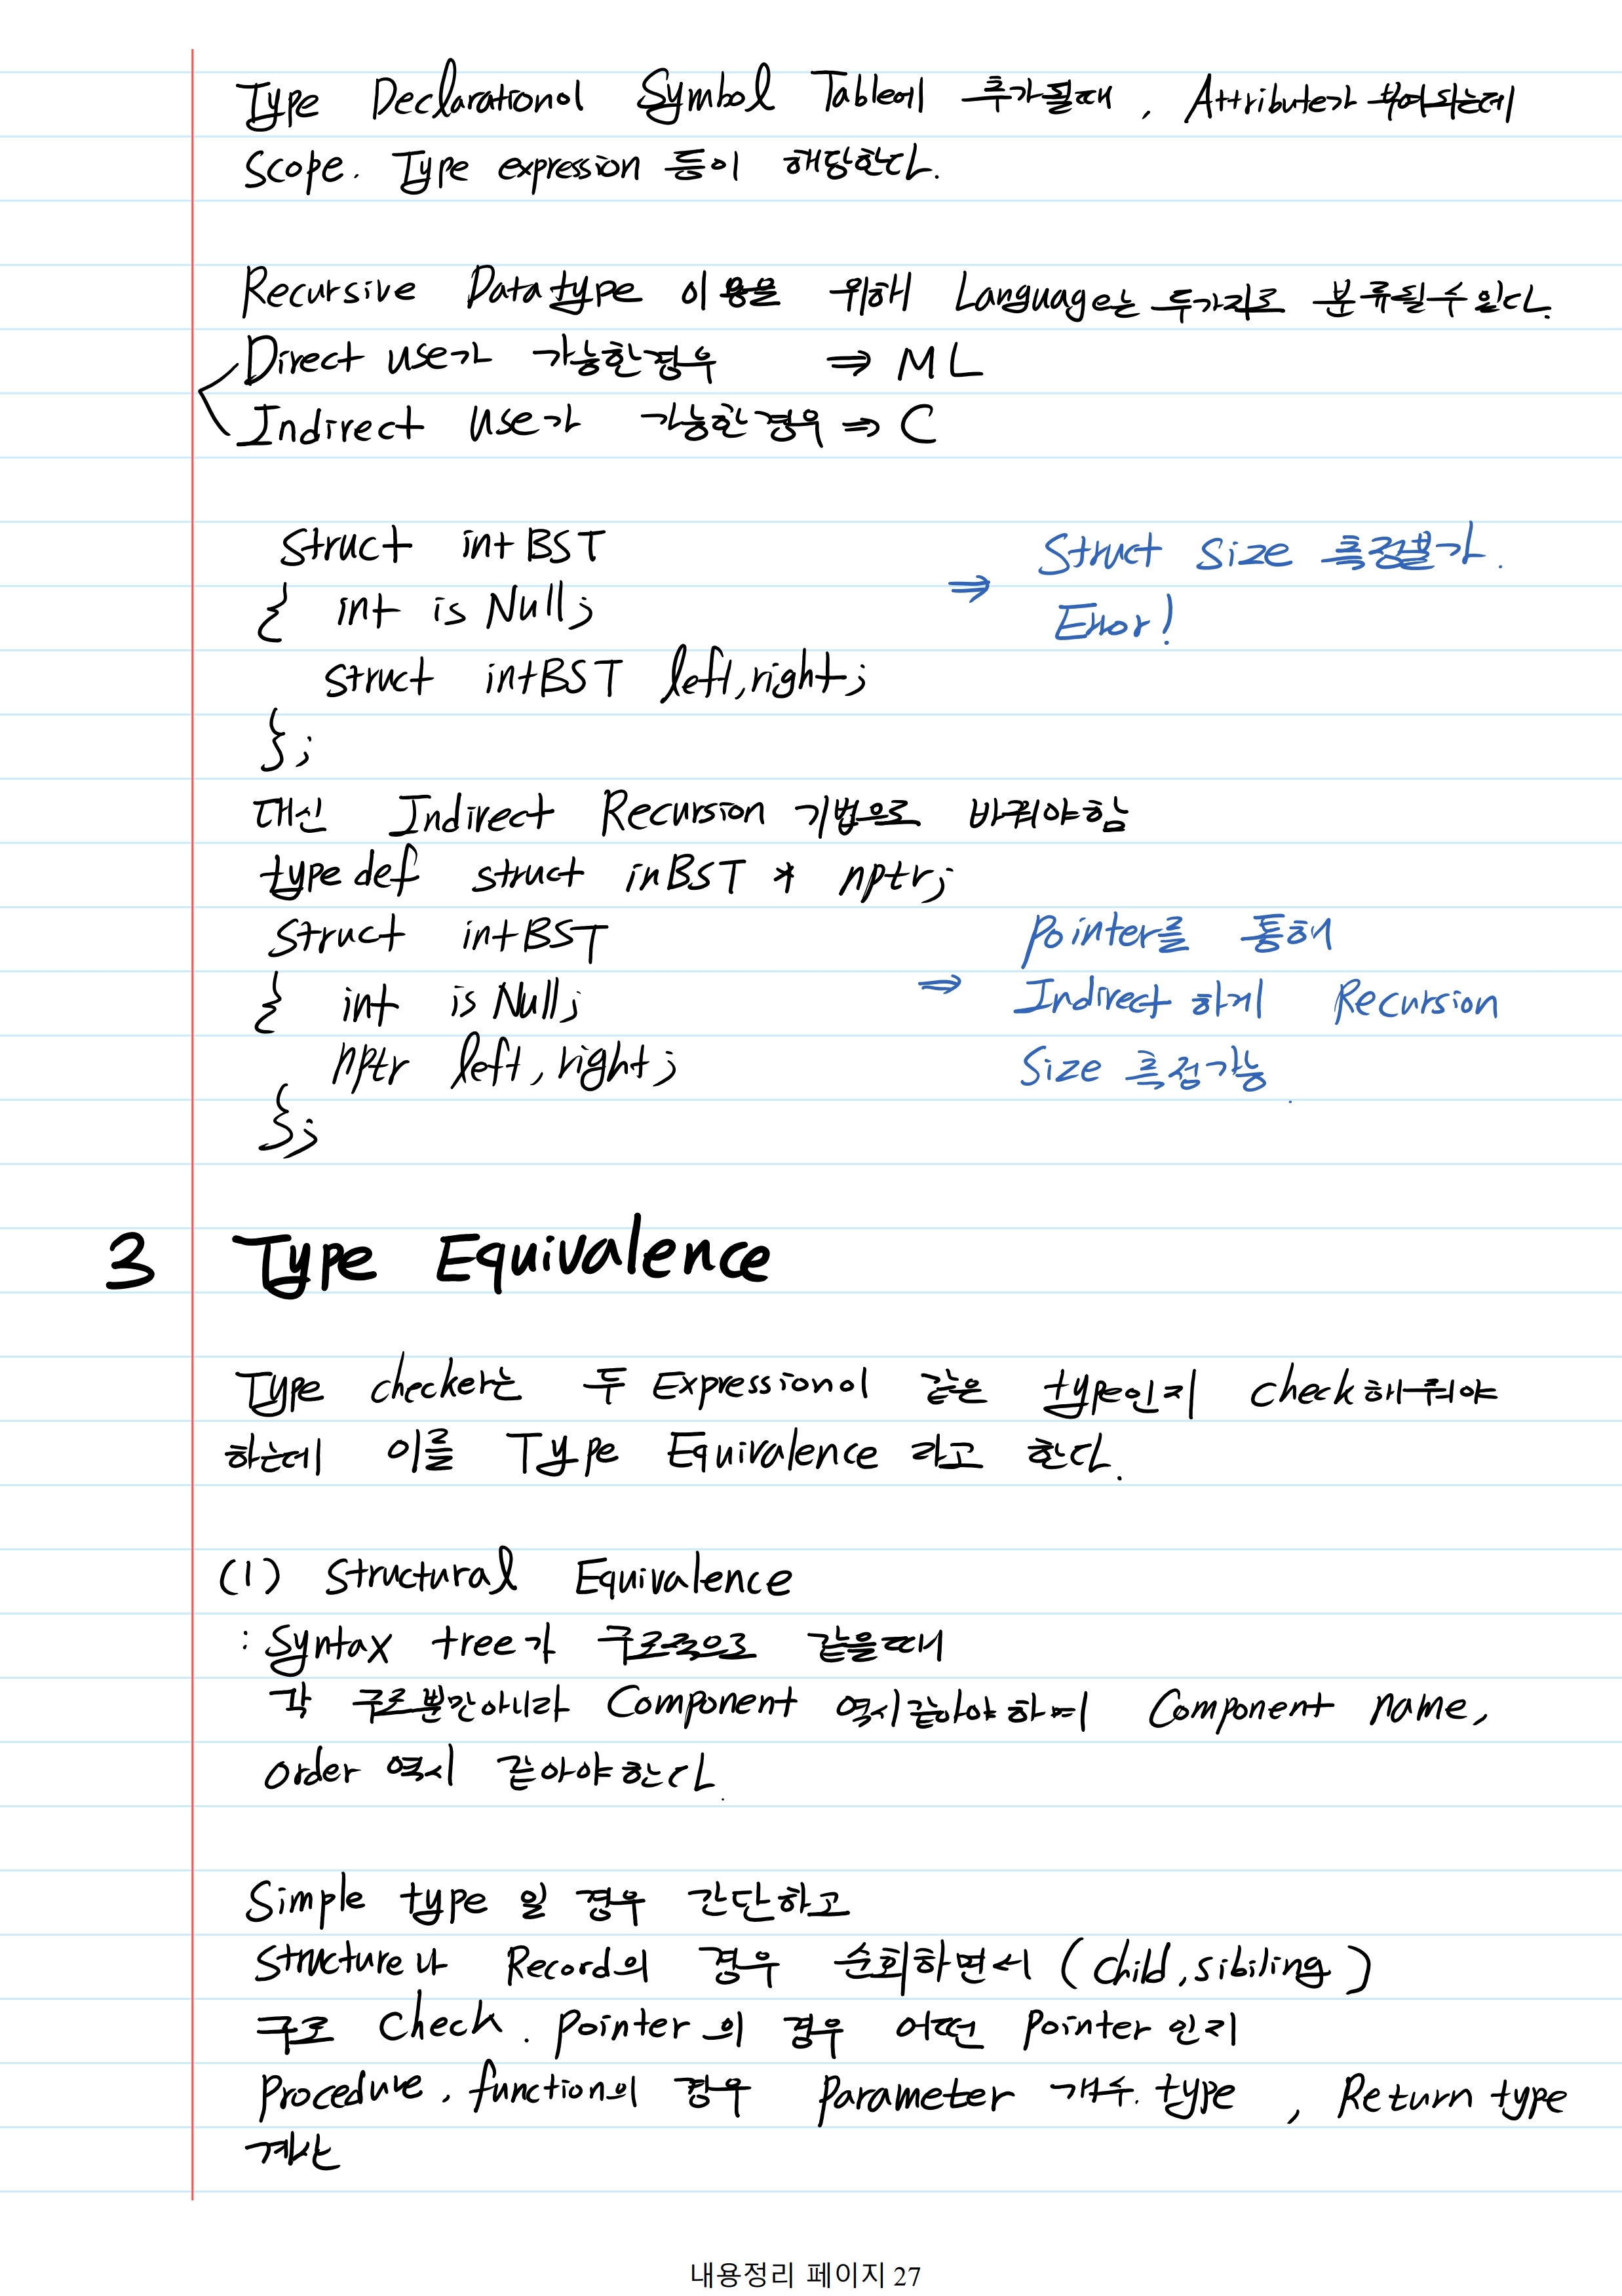 Type Declaration이 Symbol Table에 추가될때, Attribute가 부여되는데
Scope. Type expression 등이 해당한다.
Recursive Datatype 이용을 위해 Language는 두가지로 분류될수 있다.
Direct use가 가능한경우 ⇒ ML
Indirect use가 가능한경우 ⇒ C
Struct intBST
{ int isNull;
struct intBST left,right;
};
⇒ Struct Size 측정불가.
Error!
대신 Indirect Recursion 기법으로 바꿔야함
typedef struct inBST * nptr;
Struct intBST
{ int isNull;
nptr left, right;
};
⇒ pointer를 통해
Indirect 하게 Recursion
Size 측정가능.
3 Type Equivalence
Type checker는 두 Expression이 같은 type인지 check해줘야
하는데 이를 Type Equivalence 라고 한다.
(1) Structural Equivalence
: Syntax tree가 구조적으로 같을때
각 구조뿐만아니라 Component 역시같아야 하며 Component name,
order 역시 같아야한다.
Simple type 일 경우 간단하고
Structure나 Record의 경우 순회하면서 (child, sibiling)
구조 Check. pointer의 경우 어떤 pointer 인지
procedure, function의 경우 parameter 개수. type, Return type
계산
내용정리 페이지 27